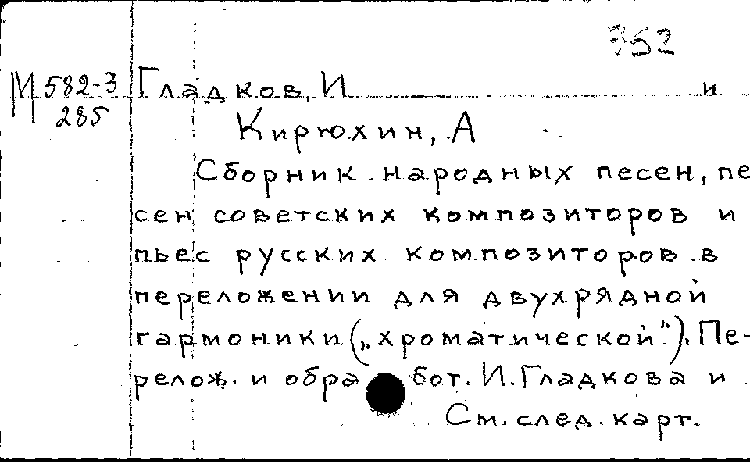 352
М 582-3 Гладков, И и
285
Кирюхин, А
Сборник народных песен, пе
сен советских композиторов и
пьес русских композиторов в
переложении для двухрядной
гармоники („хроматической"). Пе-
релож. и обработ. И. Гладкова и
См. след. карт.